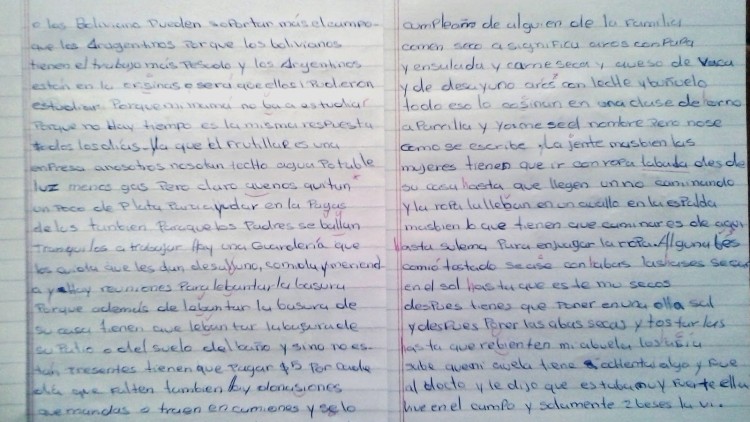 o los Bolivianos Pueden soportar más el campo.
que los Argentinos Porque los bolivianos
tienen el trabajo más Pesado y los Argentinos
están en la y será que ellos si Pudieron
estudiar Porque mi mamá no ba a estudiar
Porque no Hay tiempo es la misma respuesta
todos los días. Ya que el frutillar es una
enPresa anosotros nos dan techo agua Potable
luz menos gas Pero claro que nos quitan
un Poco de Plata Para ayudar en la Pagas
de luz tanbien Para que los Padres se ballan
tranquilos a trabajar Hay una Guardería que
los cuida que les dan, desalluno, comida y meriend
a y Hay reuniones Para lebantar la basura
Porque además de lebantar la basura de
su casa tienen que lebantar la basura de
su Patio o del suelo del baño y si no es-
tán Presentes tienen que Pagar $5 Por cada
día que falten tambien Hay donasiones
que mandas o traen en camiones y se lo
cumPleaño de alguien de la familia
comen seco a significa aros con PaPa
y ensalada y carne seca y queso de Vaca
y de desayuno arós con leche y buñuelo
todo eso lo cosinan en una clase de
a Parrilla y yo me sé el nombre Pero no se
como se escribe, La jente mas bien las
mujeres tienen que ir con roPa labada desde
su casa hasta que llegen un no caminando
y la roPa la lleban en un en la esPalda
mas bien lo que tienen que caminar es de aqui
hasta su lema Para enjuagar la roPa. Alguna bes
comió tostado se ase con labas las ases secar
en el sol hasta que este mu secos
desPues tienes que Poner en una olla sal
y desPues Poner las abas secas y tostarlas
hasta que rebienten mi abuela los asia
sabe que mi avela tiene algo y fue
al docto y le dijo que estaba muy fuerte ella
vive en el camPo y solamente 2 beses la vi.